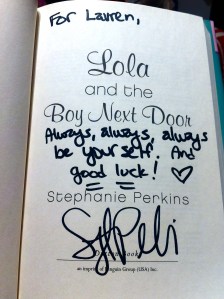 For Lauren,
Lola
and the
Boy Next Door
Always, always, always
be yourself. And
good luck! ♡
Stephanie Perkins
an imprint of Penguin Group (USA) Inc.